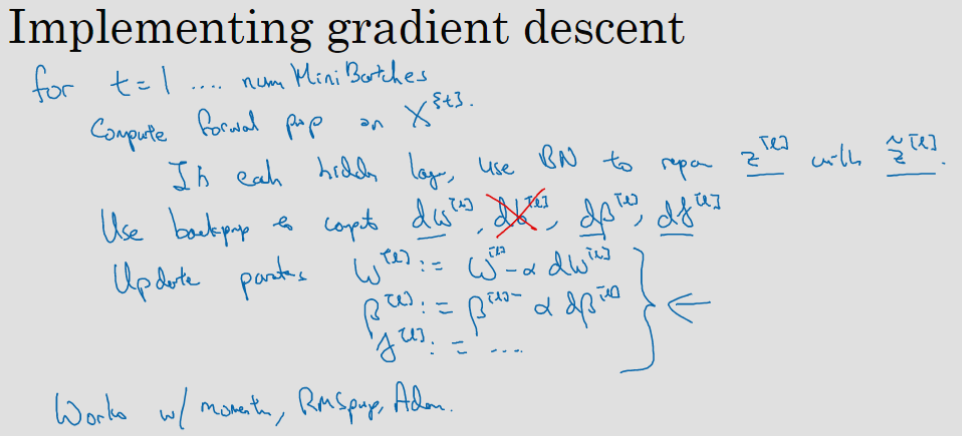 Implementing gradient descent
for t = 1 .... num Mini Batches
Compute forwad prop on X^{t}.
In each hidden lay, use BN to repar z^[l] with z̃^[l].
Use backprop to compt dw^[l], db^[l], dβ^[l], dγ^[l]
Update parates w^[l] := w^[l] - α dw^[l]
β^[l] := β^[l] - α dβ^[l]
γ^[l] := ....
Works w/ momentum, RMSprop, Adam.